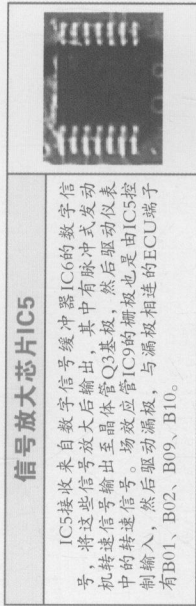 信号放大芯片IC5
IC5接收来自数字信号缓冲器IC6的数字信
号，将这些信号放大后输出，其中有脉冲式发动
机转速信号输出至晶体管Q3基极，然后驱动仪表
中的转速信号。场效应管IC9的栅极也是由IC5控
制输入，然后驱动漏极，与漏极相连的ECU端子
有B01、B02、B09、B10。